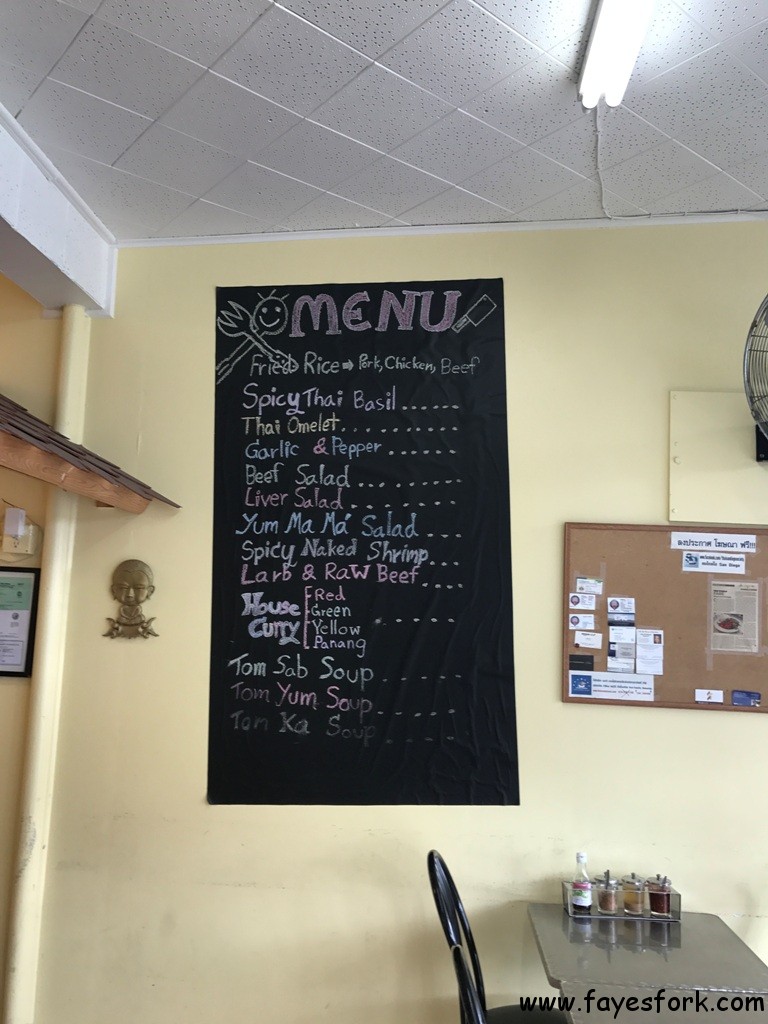 MENU
Fried Rice ➡ Pork, Chicken, Beef
Spicy Thai Basil ......
Thai Omelet..........
Garlic & Pepper .......
Beef Salad .......
Liver Salad .......
Yum Ma Má Salad ....
Spicy Naked Shrimp....
Larb & Raw Beef....
House Curry
Red
Green
Yellow
Panang
Tom Sab Soup ......
Tom Yum Soup ......
Tom Ka Soup ......
ลงประกาศ โฆษณา ฟรี!!!
www.fayesfork.com